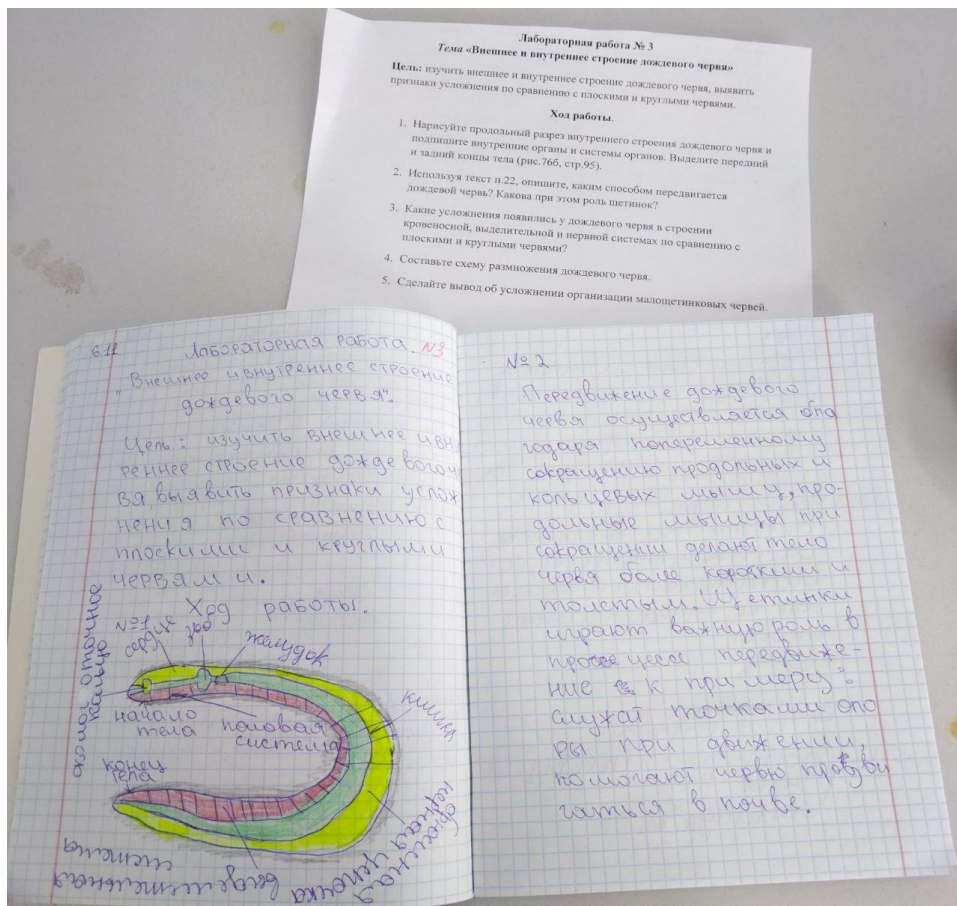 Лабораторная работа № 3
Тема «Внешнее и внутреннее строение дождевого червя»
Цель: изучить внешнее и внутреннее строение дождевого червя, выявить
признаки усложнения по сравнению с плоскими и круглыми червями.
Ход работы.
1. Нарисуйте продольный разрез внутреннего строения дождевого червя и
подпишите внутренние органы и системы органов. Выделите передний
и задний концы тела (рис.76б, стр.95).
2. Используя текст п.22, опишите, каким способом передвигается
дождевой червь? Какова при этом роль щетинок?
3. Какие усложнения появились у дождевого червя в строении
кровеносной, выделительной и нервной системах по сравнению с
плоскими и круглыми червями?
4. Составьте схему размножения дождевого червя.
5. Сделайте вывод об усложнении организации малощетинковых червей.
6.12 Лабораторная работа. №3
"Внешнее и внутреннее строение
дождевого червя".
Цель: изучить внешнее и вн
реннее строение дождевого ч
вя, выявить признаки услож
нения по сравнению с
плоскими и круглыми
червями.
Ход работы.
№1
сердце
зоб
желудок
окологлоточное
кольцо
начало
тела
половая
система
кишка
конец
тела
брюшная
нервная цепочка
выделительная
система
№ 2
Передвижение дождевого
червя осуществляется бла
годаря попеременному
сокращению продольных и
кольцевых мышц, про-
дольные мышцы при
сокращении делают тело
червя более коротким и
толстым. Щетинки
играют важную роль в
процессе передвиже-
ние к примеру:
служат точками опо
ры при движении,
помогают червю продви
гаться в почве.